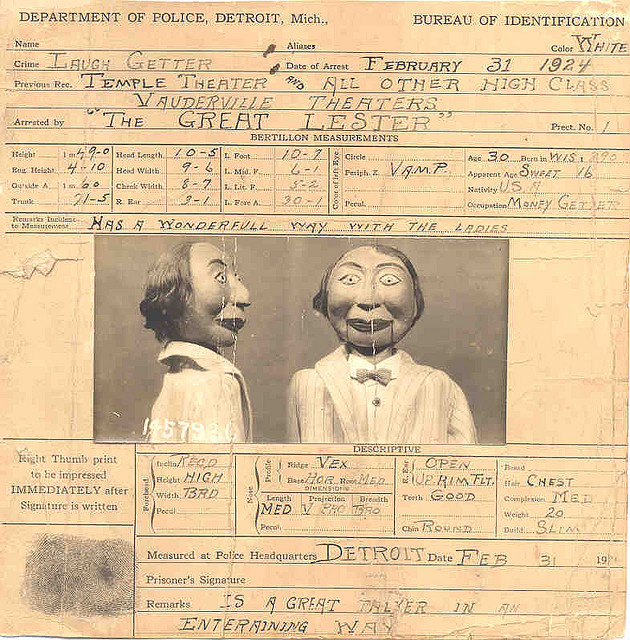 DEPARTMENT OF POLICE, DETROIT, Mich., BUREAU OF IDENTIFICATION
Name Aliases Color WHITE
Crime LAUGH GETTER Date of Arrest FEBRUARY 31 1924
Previous Rec. TEMPLE THEATER AND ALL OTHER HIGH CLASS
VAUDERVILLE THEATERS
Arrested by "THE GREAT LESTER" Prect. No. 1
BERTILLON MEASUREMENTS
Height 1 m 49-0 Head Length 10-5 L. Foot 10-7 Circle Age 30 Born in WIS.
Eng. Height 4-10 Head Width 9-6 L. Mid. F. 6-1 Periph. Z VAMP. Apparent Age SWEET 16
Outside A. 1 m 60 Cheek Width 8-7 L. Lit. F. 5-2 Nativity U.S.A
Trunk 71-5 R. Ear 3-1 L. Fore A. 30-1 Pecul. Occupation MONEY GETTER
Color of Left Eye
Remarks Incident to Measurement HAS A WONDERFULL WAY WITH THE LADIES
DESCRIPTIVE
Right Thumb print
to be impressed
IMMEDIATELY after
Signature is written
Forehead
Inclin. RECD
Height HIGH
Width BRD
Pecul.
Nose
Profile
Ridge VEX
Base HOR Root MED
DIMENSIONS
Length Projection Breadth
MED V PRO BRO
Pecul.
R. Ear OPEN
UP. RIM. FLT.
Teeth GOOD
Chin ROUND
Beard
Hair CHEST
Complexion MED
Weight 20
Build SLIM
Measured at Police Headquarters DETROIT Date FEB 31 19
Prisoner's Signature
Remarks IS A GREAT TALKER IN AN
ENTERAINING WAY